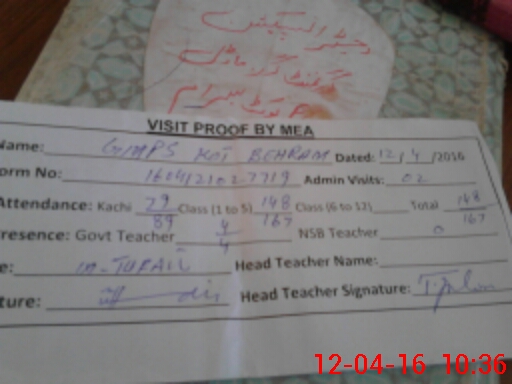 رجسٹر انسپکشن
گورنمنٹ گرلز ماڈل
کوٹ بہرام
VISIT PROOF BY MEA
Name: GMPS KOT BEHRAM Dated: 12/4/2016
orm No: Admin Visits: 02
Attendance: Kachi 79/89 Class (1 to 5) 148/167 Class (6 to 12) Total 148/167
resence: Govt Teacher 4/4 NSB Teacher 0
e: M-TUFAIL Head Teacher Name:
ture: Head Teacher Signature:
12-04-16 10:36